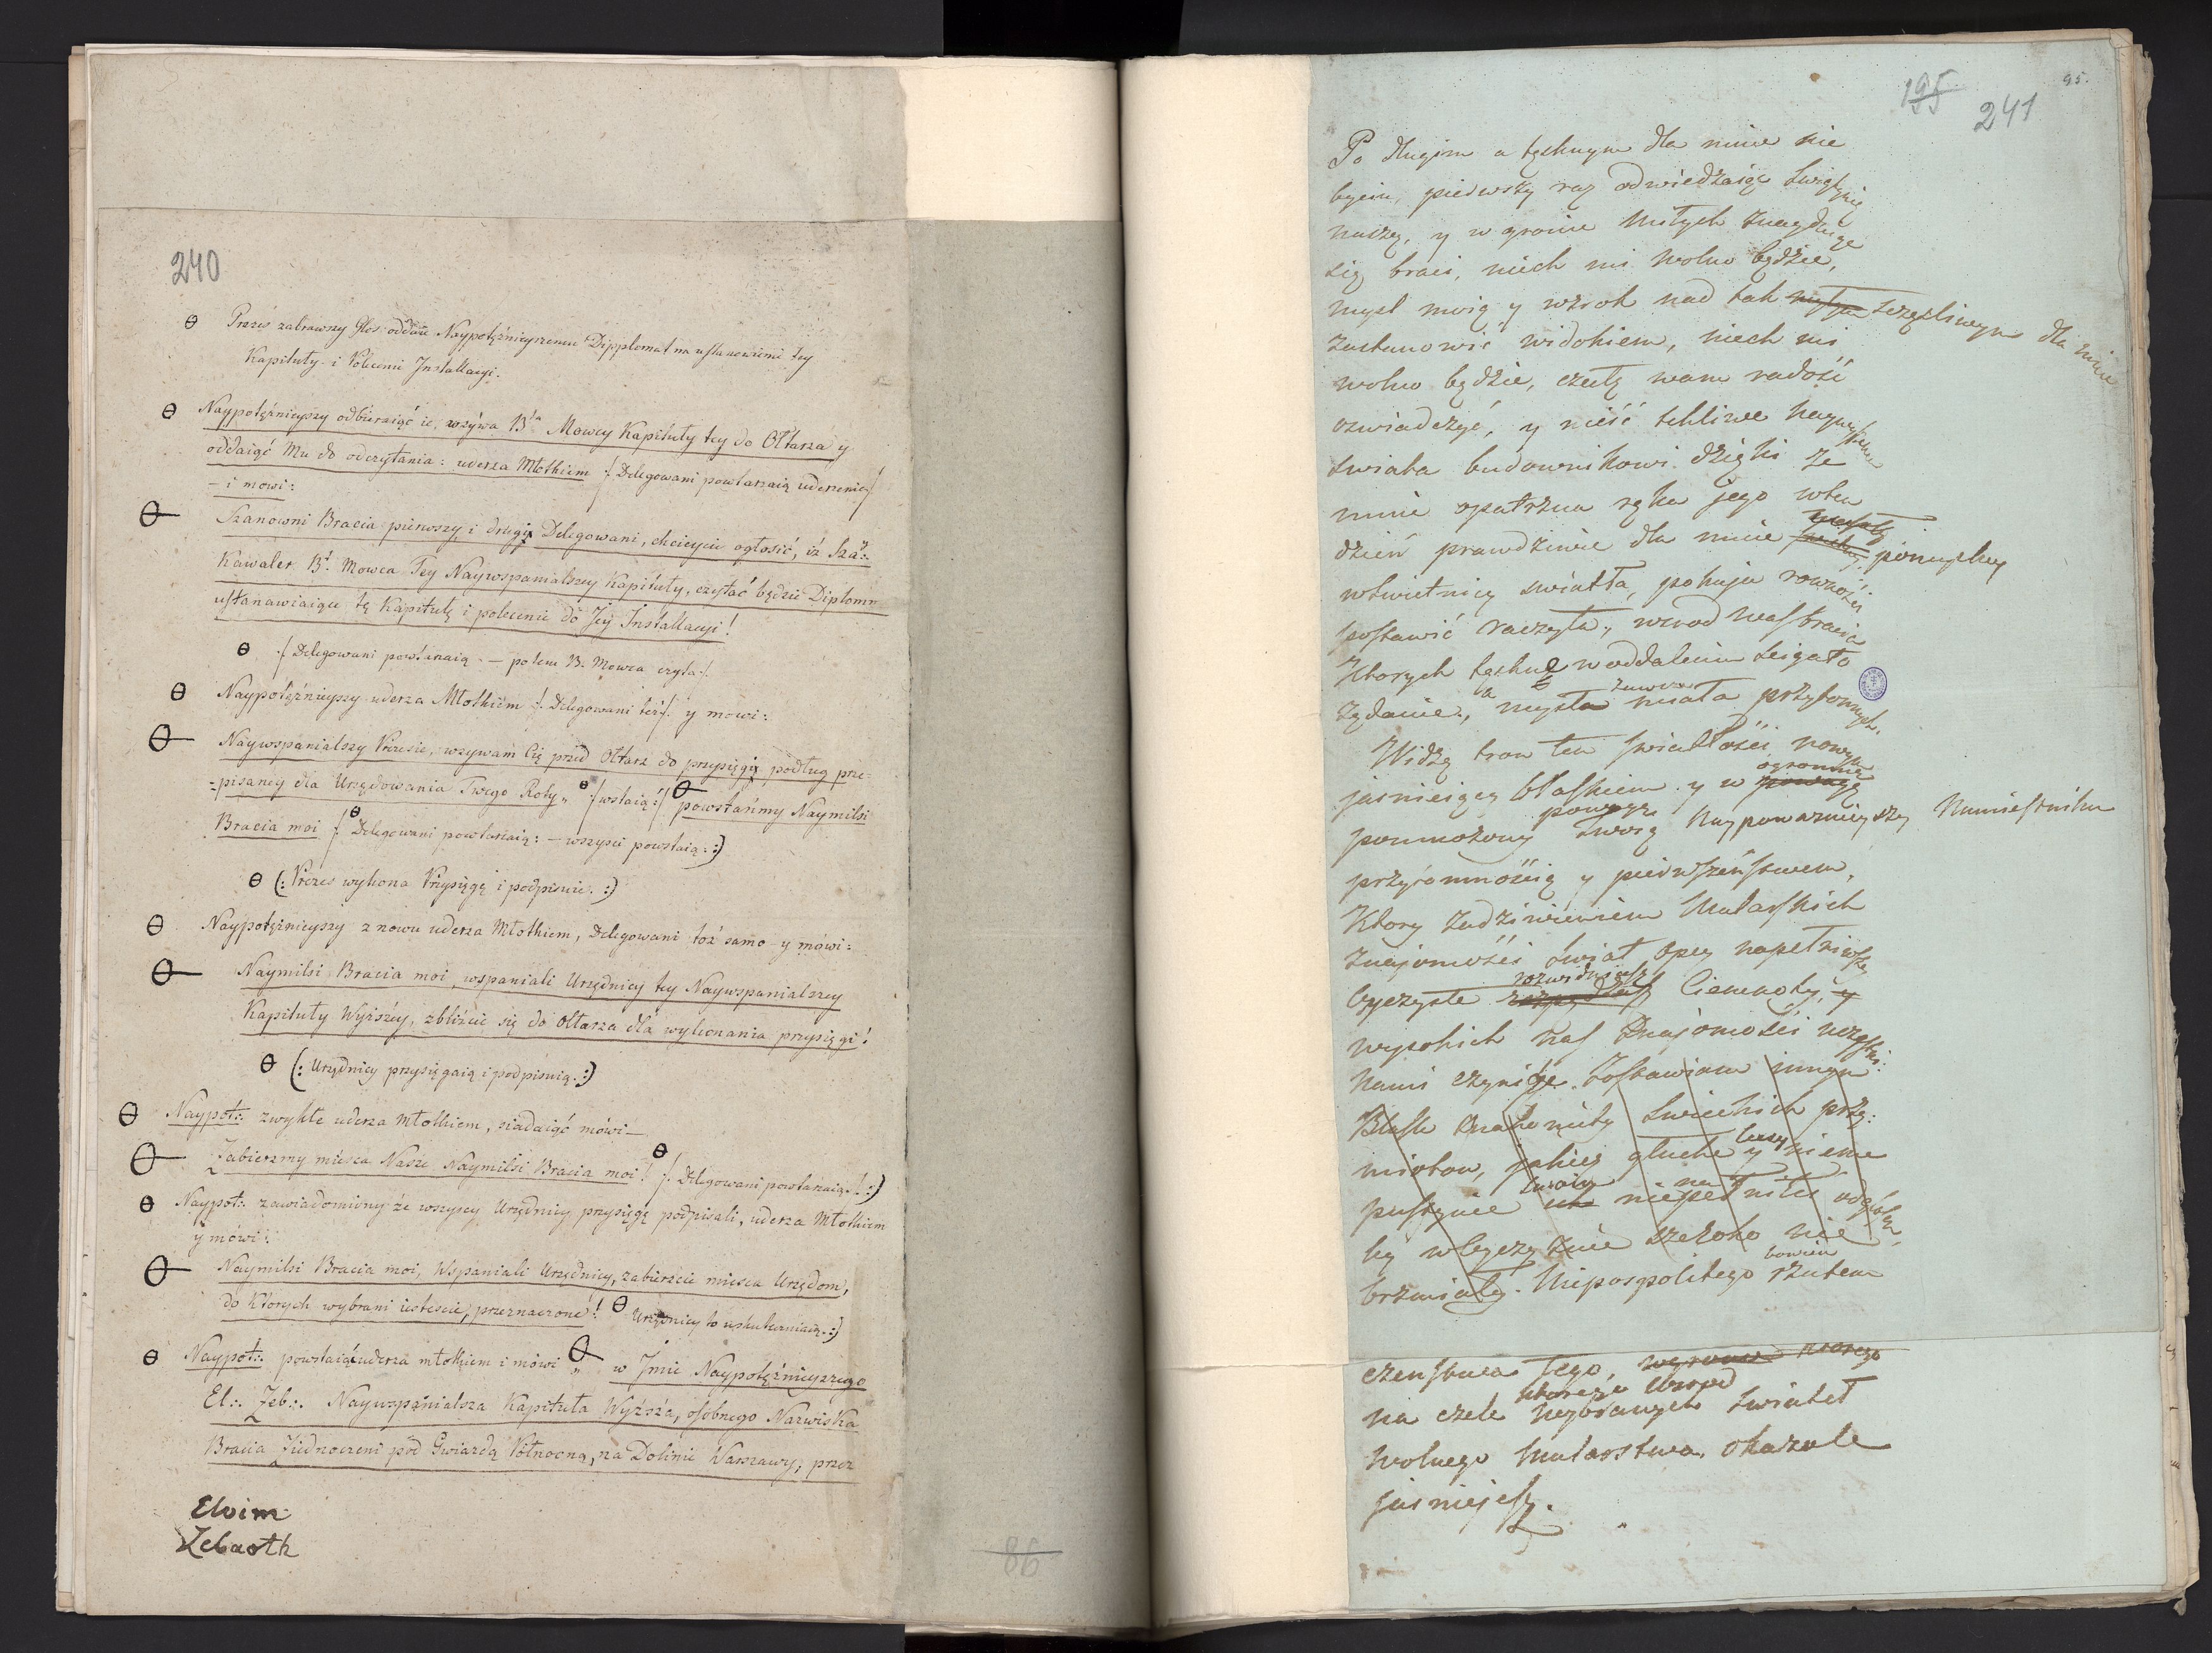 240
Θ Prezes zabrawszy Głos oddaie Naypotężnieyszemu Dipplomat na ustanowienie tey
Kapituły i Polecenie Installacyi.
Θ Naypotężnieyszy odbieraiąc ie, wzywa B̃ta Mowcy Kapituły tey do Ołtarza y
oddaiąć Mu do odczytania: uderza Młotkiem /: Delegowani powtarzaią uderzenie/
- i mowi:
Θ Szanowni Bracia pierwszy i drugi Delegowani, chcieycie ogłosić, iż Sza:.
Kawaler B̃t. Mowca Tey Naywspanialszey Kapituły, czytać będzie Diploma
ustanawiaiące tę Kapitułę i polecenie do Jey Installacyi!
Θ /: Delegowani powtarzaią. — potem B. Mowca czyta:/.
Θ Naypotężnieyszy uderza Młotkiem /: Delegowani też/: y mowi:
Θ Naywspanialszy Prezesie, wzywam Cię przed Ołtarz do przysięgi podług prze-
-pisaney dla Urzędowania Twego Roty „ Θ /wstaią:/ Θ powstańmy Naymilsi
Bracia moi /: Θ Delegowani powtarzaią: — wszyscy powstaią:.:)
Θ (: Prezes wykona Przysięgę i podpisuie. :)
Θ Naypotężnieyszy z nowu uderza Młotkiem, Delegowani toż samo - y mówi:
Θ Naymilsi Bracia moi, wspaniali Urzędnicy tey Naywspanialszey
Kapituły Wyższéy, zbliżcie się do Ołtarza dla wykonania przysięgi!
Θ (: Urzędnicy przysięgaią i podpisuią. :)
Θ Naypot:. zwykłe uderza Młotkiem, siadaiąć mówi —
Θ Zabierzmy miesca Nasze Naymilsi Bracia moi! Θ /: Delegowani powtarzaią. :)
Θ Naypot:. zawiadomiony że wszyscy Urzędnicy przysięgę podpisali, uderza Młotkiem
y mówi:
Θ Naymilsi Bracia moi, Wspaniali Urzędnicy, zabierzcie miesca Urzędom,
do ktorych wybrani iesteście, przeznaczone! Θ Urzędnicy to uskuteczniaią. :)
Θ Naypot:. powstaiąć uderza młotkiem i mówi „ Θ w Jmie Naypotężnieyszego
El:. Zeb:. Naywspanialsza Kapituła Wyższa, osóbnego Nazwiska
Bracia Ziednoczeni pod Gwiazdą Północną, na Dolinie Warszawy, przez
Eloim
Zebaoth
86
195 241 95.
Po długim a tęsknym dla mnie nie
byciu, pierwszy raz odwiedzaiąc Swiątynię
naszą, y w gronie Miłych znayduiąc
się braci, niech mi wolno będzie,
mysl moią y wzrok nad tak szczęśliwym dla mnie
zastanowić widokiem, niech mi
wolno będzie, czułą wam radość
oswiadczyć, y nieść tkliwe
swiata budownikowi dzięki że
mnie opatrzna ręka jego w ten
dzień prawdziwie dla mnie pomyslny
w swietnicy swiatła, pokuju rowności
postawić raczyła, wsrod was bracia
Ktorych tęskne w oddaleniu scigało
żądanie, a mysl zawsze miała przytomnych.
Widzę tron ten swiatłości nowym
jasnieiący blaskiem y w ogromną
pomnożony powagę Twoią Naypoważnieyszy Namiestniku
przytomnością y pierwszeństwem,
Ktory zadziwieniem Mularskich
znajomości swiat Oycz napełniwszy
oyczyste rozwidniasz Ciemnoty, y
wysokich nas Znajomości uczęstni:
kami czynisz. Zostawiam innym
Blask swieckich przy:
miotow, jakiey głuche y nieme
pustynie
by w Oyczyznie szeroko nie
brzmiały. Niepospolitego bowiem rzutem
czenstwa tego,
na czele Wsrod swiateł
Wolnego Mularstwa. okazale
jasniejesz.